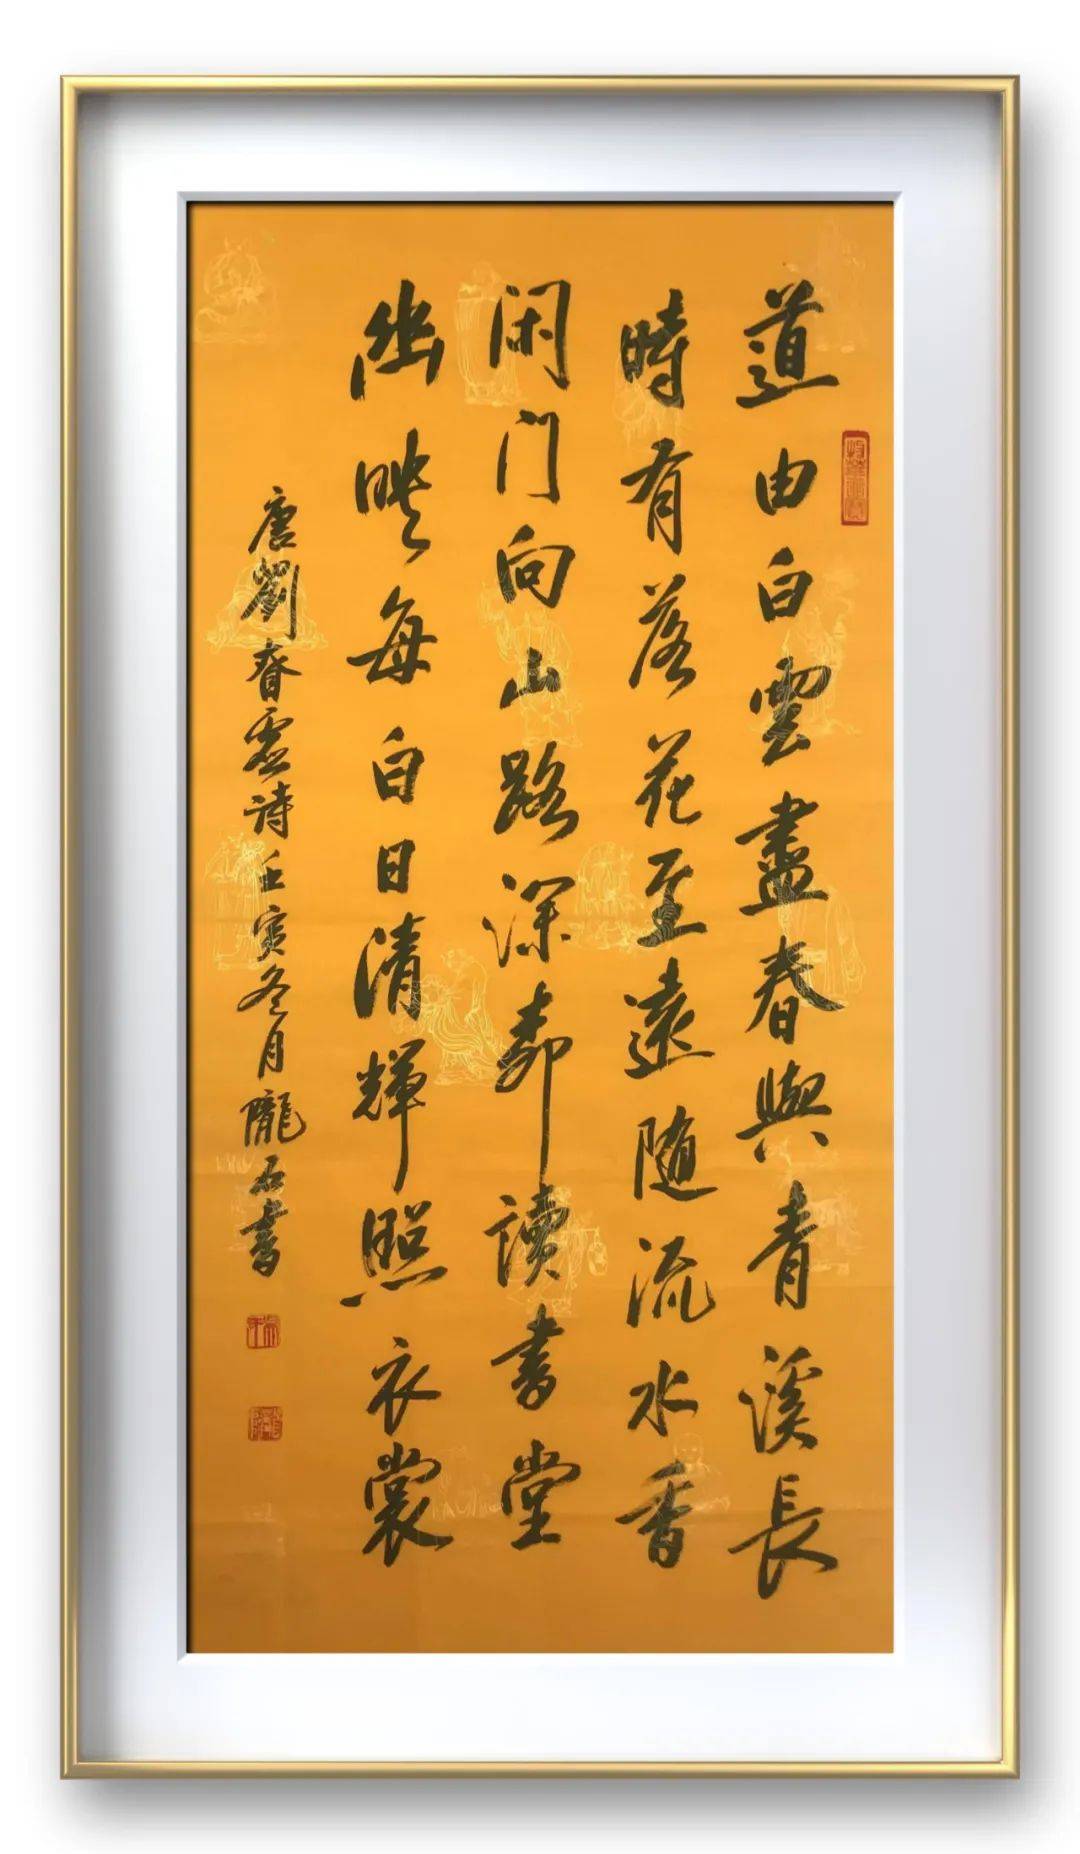 道由白雲盡春與青溪長
時有落花至遠随流水香
闲门向山路深柳读書堂
幽映每白日清輝照衣裳
唐劉眘虚诗壬寅冬月隴石書